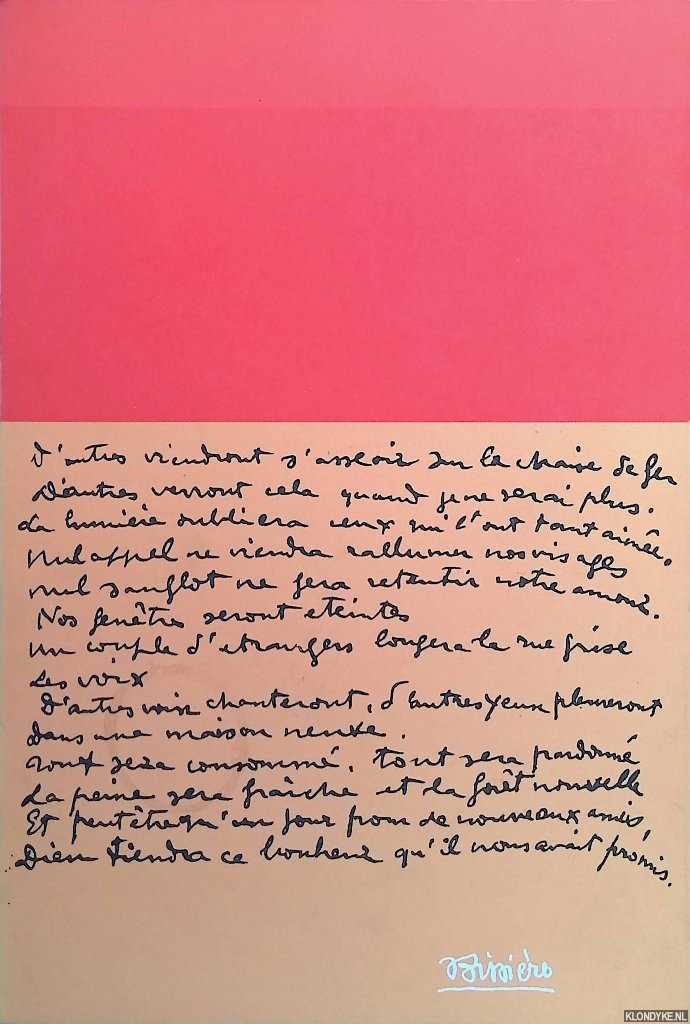 D'autres viendront s'asseoir sur la chaise de fer
D'autres verront cela quand je ne serai plus.
La lumière oubliera ceux qui l'ont tant aimée.
Nul appel ne viendra rallumer nos visages
nul sanglot ne fera retentir notre amour.
Nos fenêtres seront eteintes
un couple d'etrangers longera la rue grise
Les voix
D'autres voix chanteront, d'autres yeux pleureront
dans une maison neuve.
Tout sera consommé, tout sera pardonné
La peine sera fraîche et la forêt nouvelle
Et peut être qu'un jour pour de nouveaux amis,
Dieu tiendra ce bonheur qu'il nous avait promis.
Bissière
KLONDYKE.NL